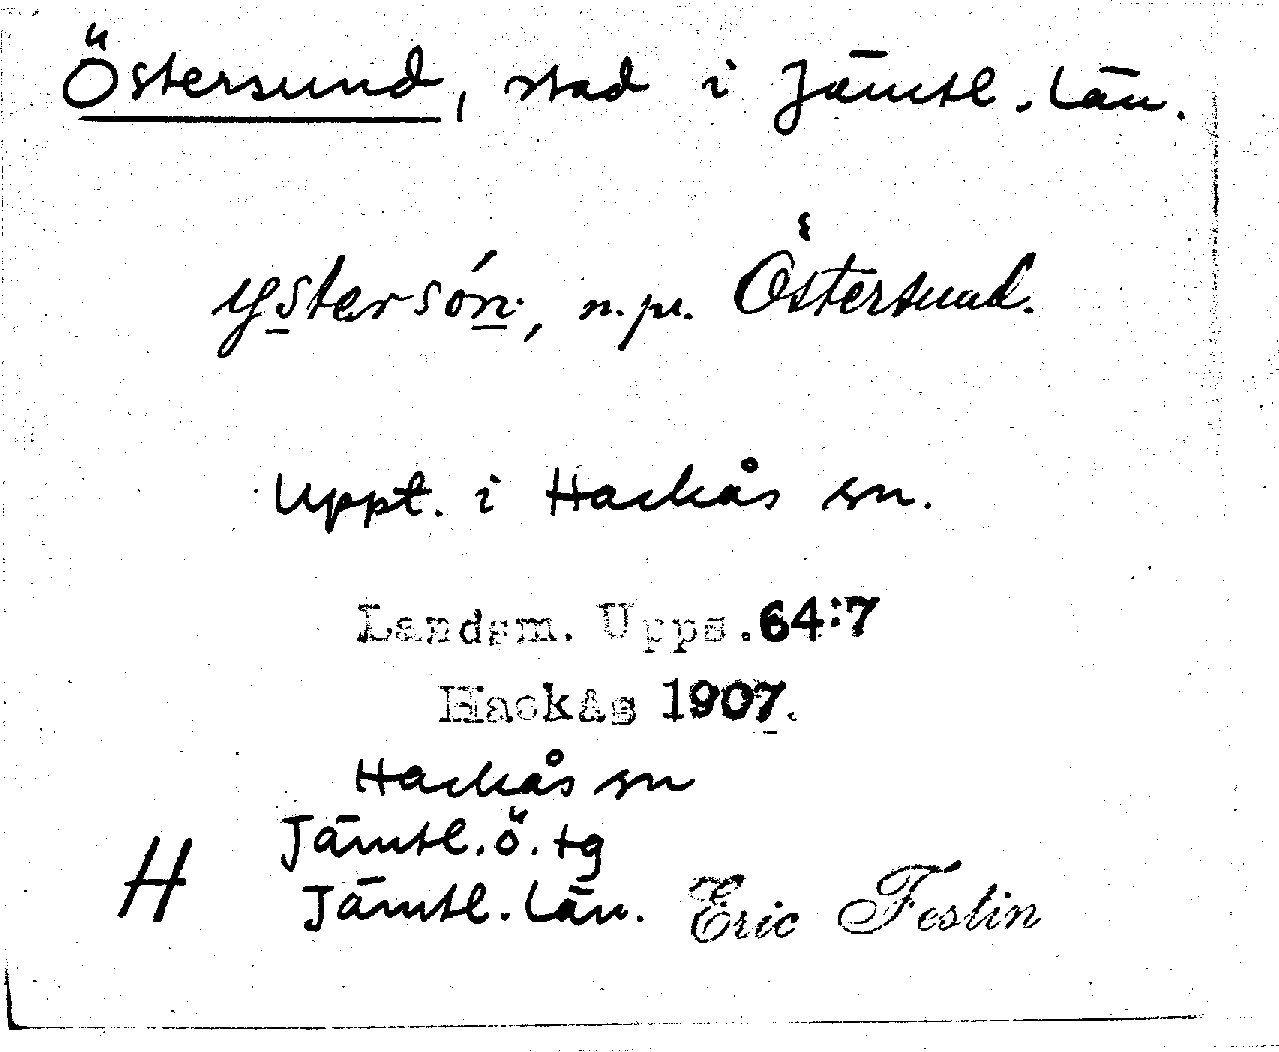 Östersund, stad i Jämtl. län.
ystersón, n.pr. Östersund.
Uppt. i Hackås sn.
Landsm. Upps. 64:7
Hackås 1907.
Hackås sn
Jämtl. ö. tg
H Jämtl. län. Eric Festin